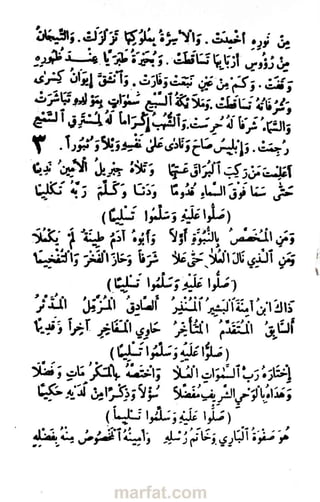 مِنْ نُورِهِ أُخْمِدَتْ . وَالْأَسِرَّةُ بِمُلُوكِهَا تَزَلْزَلَتْ . وَالتِّيجَانُ
مِنْ رُؤُوسِ أَرْبَابِهَا تَسَاقَطَتْ . وَبُحَيْرَةُ طَبَرِيَّا عِنْدَ ظُهُورِهِ
وَقَفَتْ . وَكَمْ مِنْ عَيْنٍ نَبَعَتْ وَفَارَتْ . وَانْشَقَّ إِيوَانُ كِسْرَى
وَشُرُفَاتُهُ تَسَاقَطَتْ . وَمَلَائِكَةُ السَّبْعِ سَمَوَاتٍ بِمَوْلِدِهِ تَبَاشَرَتْ
وَالسَّمَاءُ شَرَفًا لَهُ حُرِسَتْ . وَالشُّهُبُ إِكْرَامًا لَهُ لِمُسْتَرِقِ السَّمْعِ
رُجِمَتْ . وَإِبْلِيسُ صَاحَ وَنَادَى عَلَى نَفْسِهِ وَيْلًا وَثُبُورًا . ٣
أَعْلِمْتَ مَنْ رَكِبَ الْبُرَاقَ عَتِيمًا وَتَلَاهُ جِبْرِيلُ الْأَمِينُ نَدِيمًا
حَتَّى سَمَا فَوْقَ السَّمَاءِ قُدُومًا وَدَنَا وَكَلَّمَ رَبَّهُ تَكْلِيمًا
( صَلُّوا عَلَيْهِ وَسَلِّمُوا تَسْلِيمًا )
وَمَنِ الْمُخَصَّصُ بِالنُّبُوَّةِ أَوَّلًا وَأَبُوهُ آدَمُ طِينُهُ لَمْ يَكْمُلَا
وَمَنِ الَّذِي نَالَ الْعُلَا حَتَّى عَلَا شَرَفًا وَحَازَ الْفَخْرَ وَالتَّفْخِيمَا
( صَلُّوا عَلَيْهِ وَسَلِّمُوا تَسْلِيمًا )
ذَاكَ ابْنُ آمِنَةَ الْبَشِيرُ الْمُنْذِرُ الصَّادِقُ الْمُزَّمِّلُ الْمُدَّثِّرُ
السَّابِقُ الْمُتَقَدِّمُ الْمُتَأَخِّرُ حَاوِي الْمَفَاخِرِ آخِرًا وَقَدِيمًا
( صَلُّوا عَلَيْهِ وَسَلِّمُوا تَسْلِيمًا )
إِخْتَارَهُ رَبُّ السَّمَوَاتِ الْعُلَا وَاخْتَصَّهُ بِالْمَكْرُمَاتِ وَفَضَّلَا
وَهَدَاهُ بِالْوَحْيِ الشَّرِيفِ مُفَصَّلًا وَذِكْرًا مِنْ لَدَيْهِ حَكِيمًا
( صَلُّوا عَلَيْهِ وَسَلِّمُوا تَسْلِيمًا )
هُوَ صَفْوَةُ الْبَارِي وَخَاتَمُ رُسْلِهِ وَأَمِينُهُ الْمَخْصُوصُ مِنْهُ بِفَضْلِهِ
marfat.com